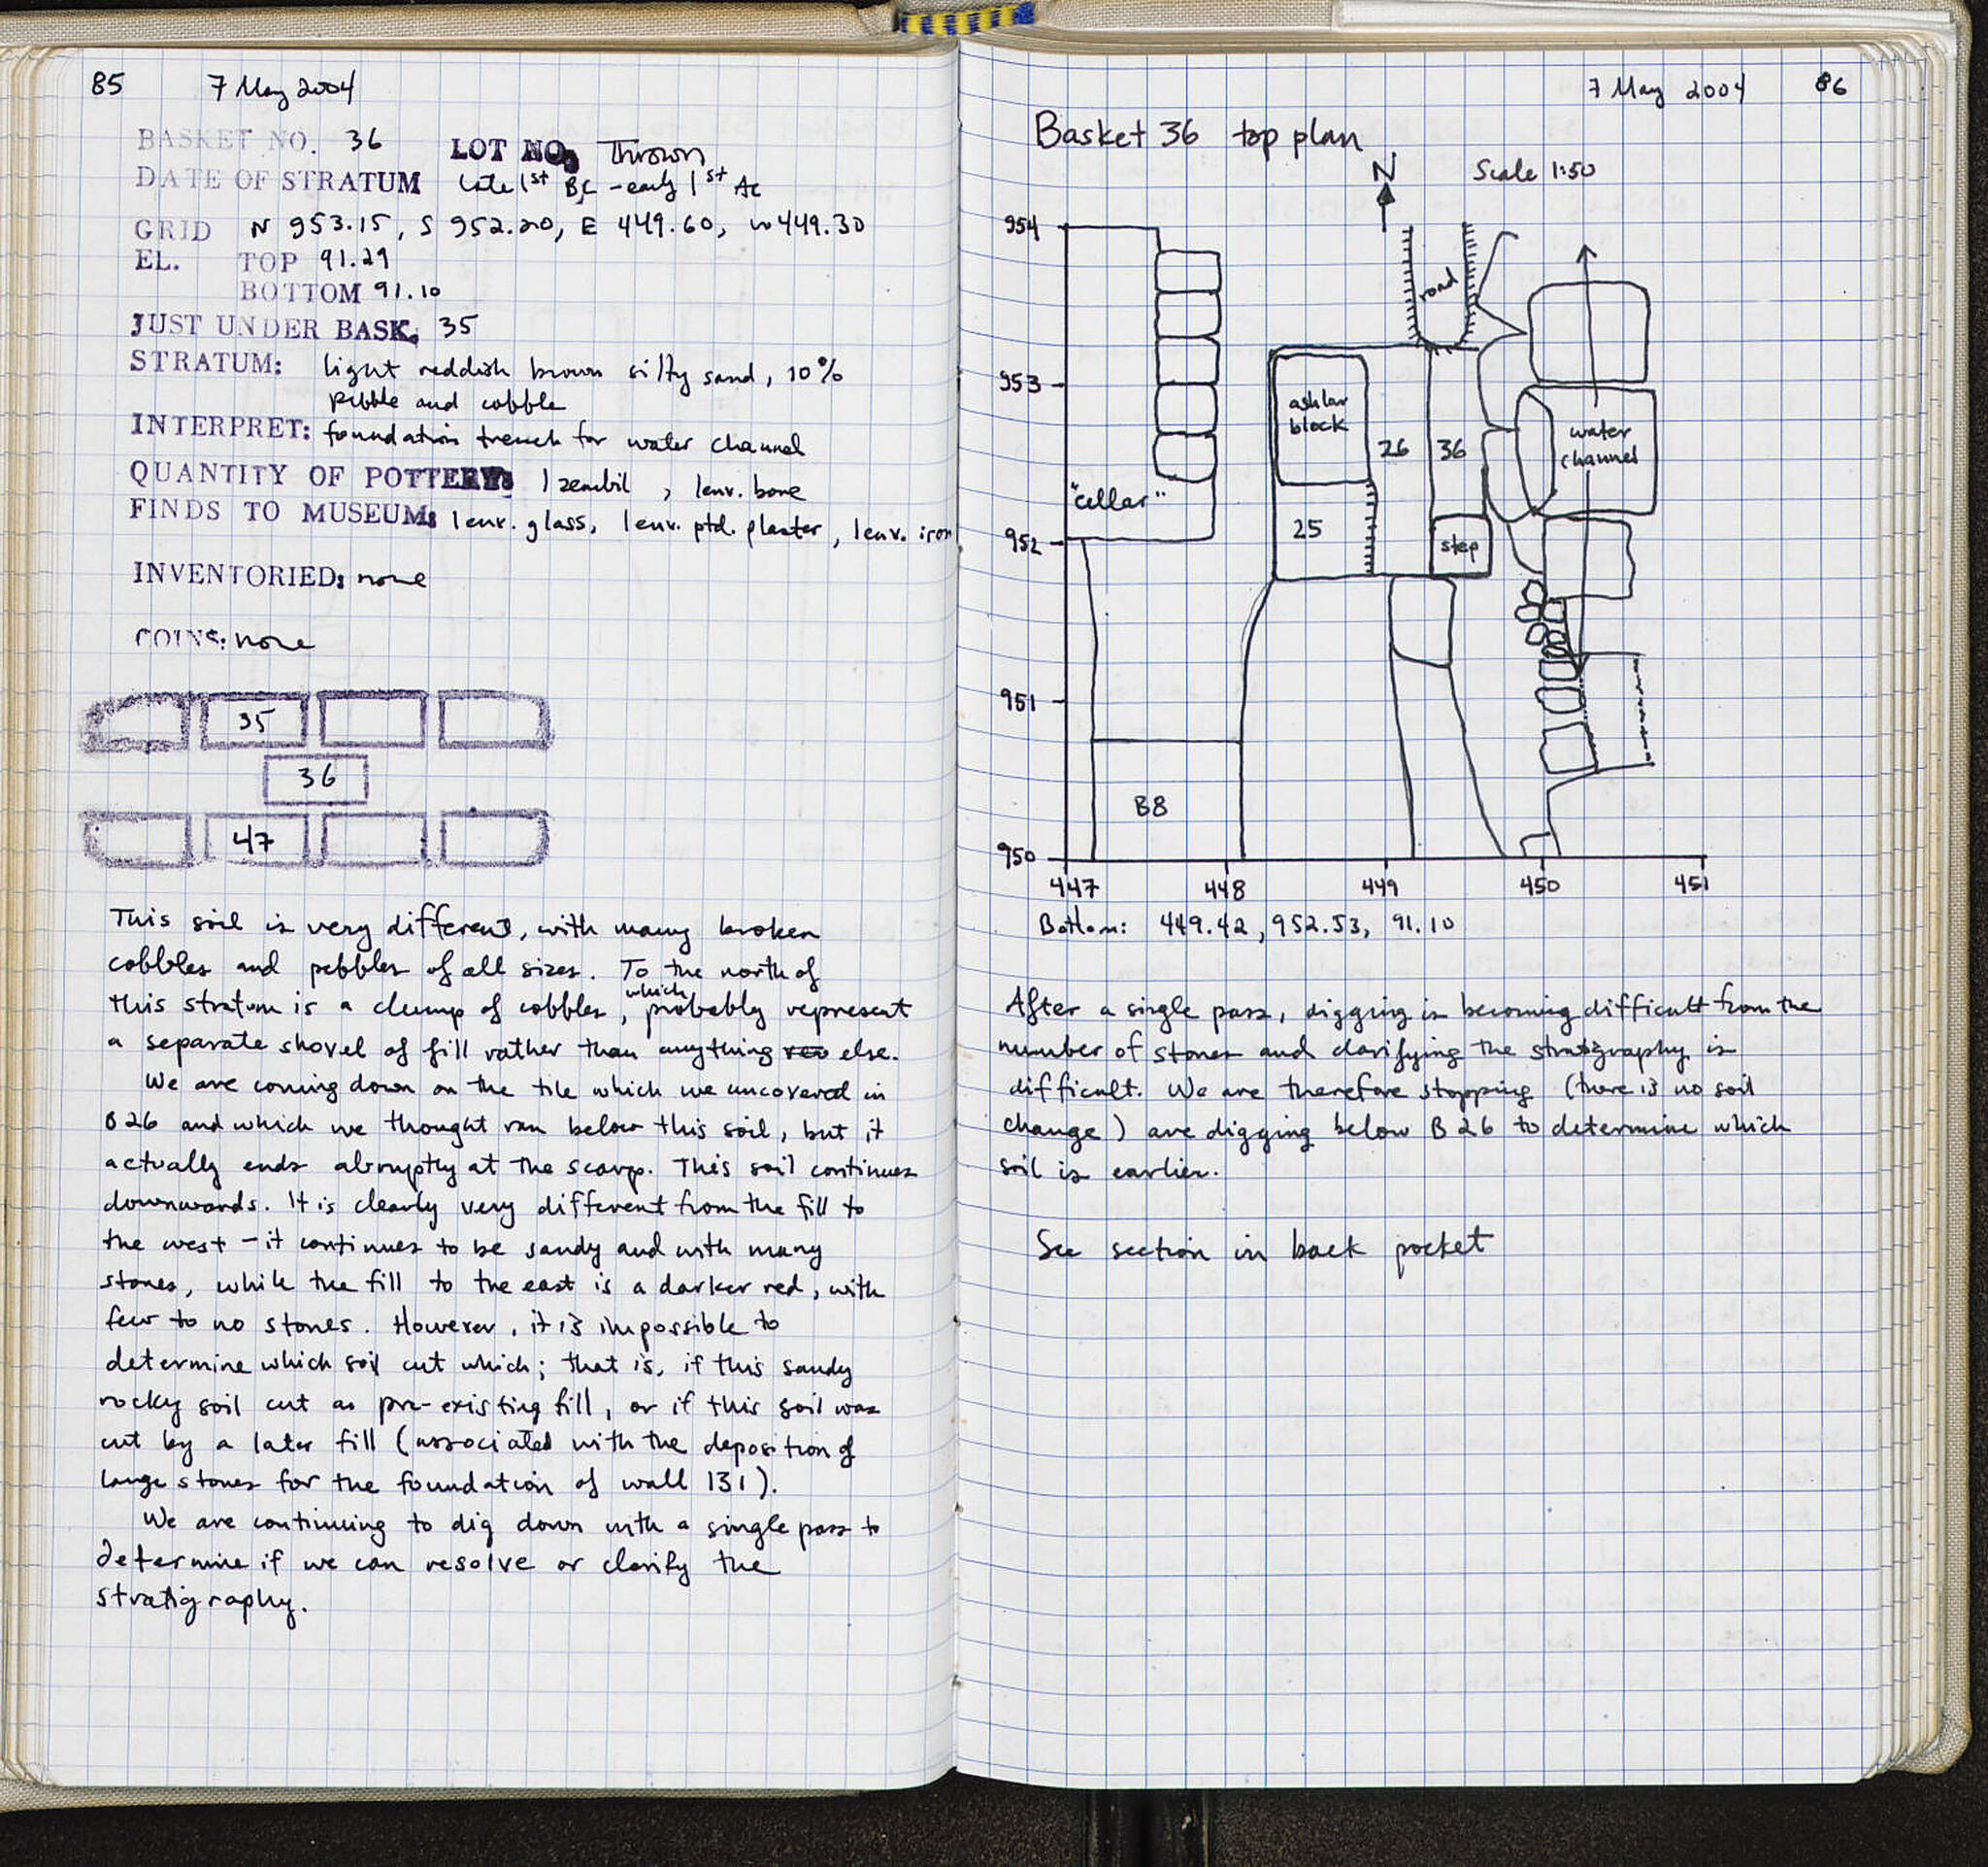 85 7 May 2004
BASKET NO. 36 LOT NO. Thrown
DATE OF STRATUM late 1st BC - early 1st AC
GRID N 953.15, S 952.20, E 449.60, W 449.30
EL. TOP 91.29
BOTTOM 91.10
JUST UNDER BASK. 35
STRATUM: light reddish brown silty sand, 10%
pebble and cobble
INTERPRET: foundation trench for water channel
QUANTITY OF POTTERY: 1 zembil, 1 env. bone
FINDS TO MUSEUM: 1 env. glass, 1 env. ptd. plaster, 1 env. iron
INVENTORIED: none
COINS: none
35
36
47
This soil is very different, with many broken
cobbles and pebbles of all sizes. To the north of
this stratum is a clump of cobbles, which probably represent
a separate shovel of fill rather than anything else.
We are coming down on the tile which we uncovered in
B26 and which we thought ran below this soil, but it
actually ends abruptly at the scarp. This soil continues
downwards. It is clearly very different from the fill to
the west - it continues to be sandy and with many
stones, while the fill to the east is a darker red, with
few to no stones. However, it is impossible to
determine which soil cut which; that is, if this sandy
rocky soil cut a pre-existing fill, or if this soil was
cut by a later fill (associated with the deposition of
large stones for the foundation of wall 131).
We are continuing to dig down with a single pass to
determine if we can resolve or clarify the
stratigraphy.
7 May 2004 86
Basket 36 top plan
N Scale 1:50
954
road
953
ashlar
block
26 36
water
channel
"cellar"
25
952
step
951
B8
950
447 448 449 450 451
Bottom: 449.42, 952.53, 91.10
After a single pass, digging is becoming difficult from the
number of stones and clarifying the stratigraphy is
difficult. We are therefore stopping (there is no soil
change) are digging below B26 to determine which
soil is earlier.
See section in back pocket